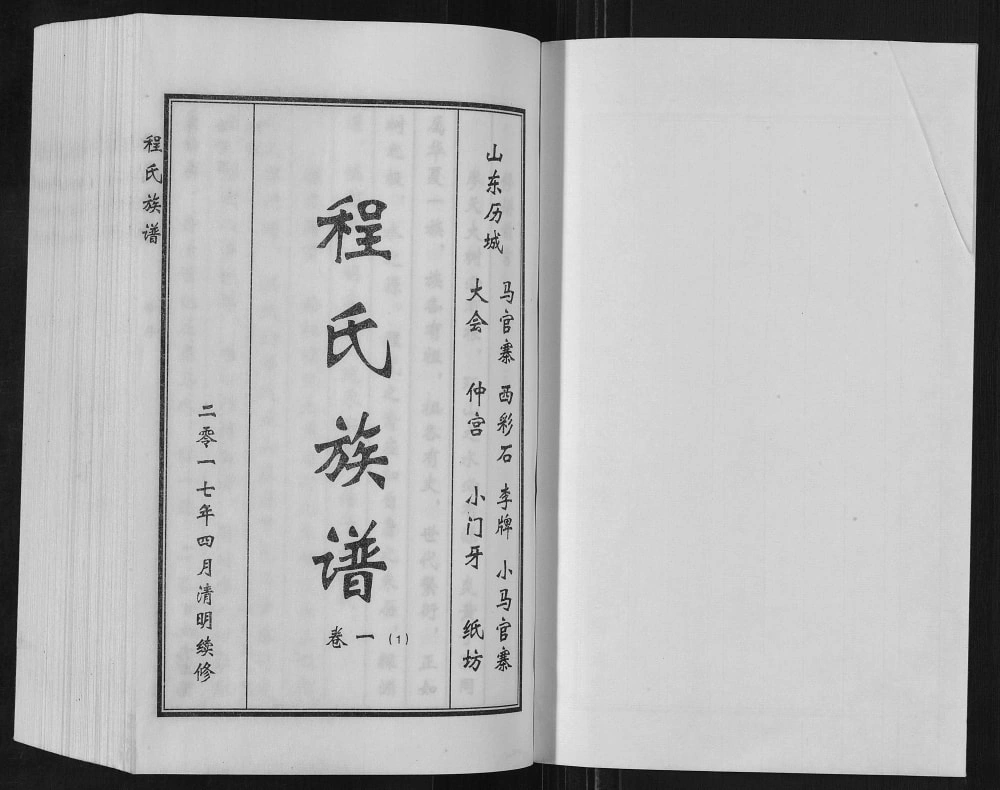 山东历城
马官寨 西彩石 李牌 小马官寨
大会 仲宫 小门牙 纸坊
程氏族谱
卷一 (1)
二零一七年四月清明续修
程氏族谱